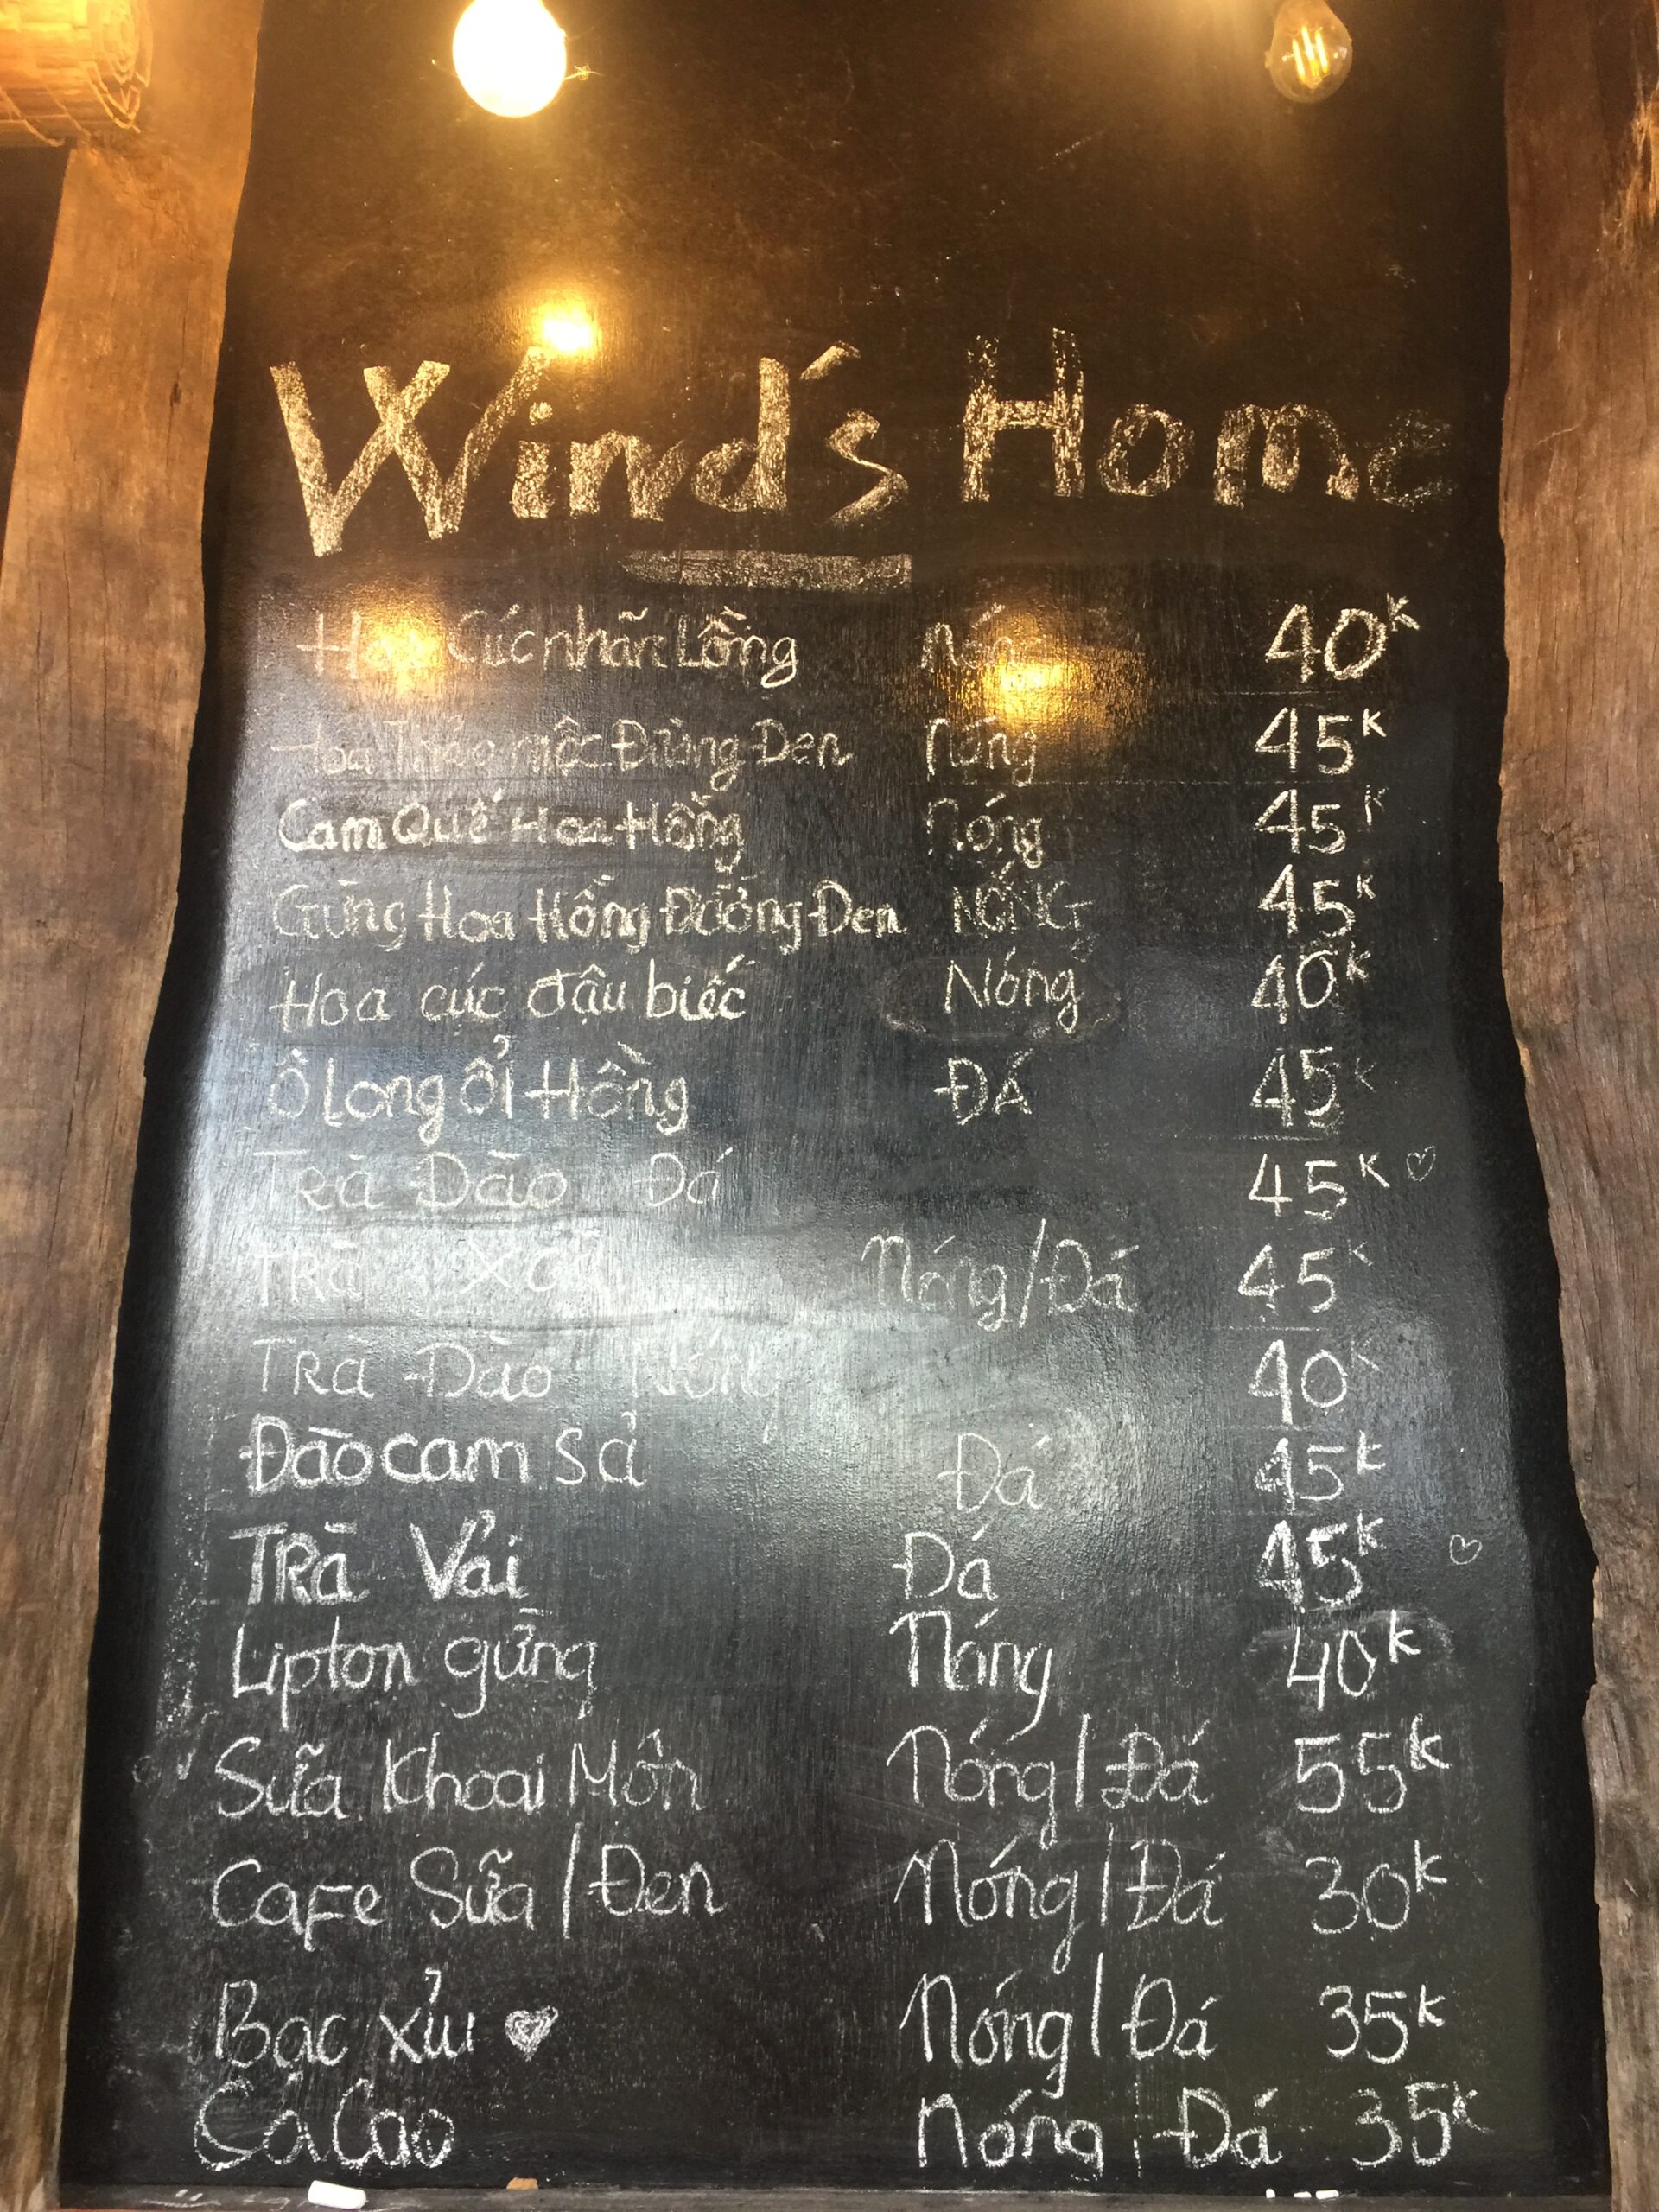 Wind's Home
Hoa Cúc nhãn Lồng Nóng 40K
Hoa Thảo mộc Đường Đen Nóng 45K
Cam Quế Hoa Hồng Nóng 45K
Gừng Hoa Hồng Đường Đen NÓNG 45K
Hoa cúc đậu biếc Nóng 40K
Ô Long ổi Hồng ĐÁ 45K
Trà Đào Đá 45K
TRà Nóng/Đá 45K
TRà Đào Nóng 40K
Đào cam sả Đá 45K
TRà Vải Đá 45K
Lipton gừng Nóng 40K
Sữa Khoai Môn Nóng/Đá 55K
CaFe Sữa/Đen Nóng/Đá 30K
Bạc xỉu Nóng/Đá 35K
Ca Cao Nóng/Đá 35K